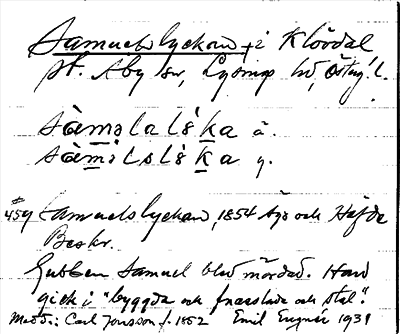 Samuelslyckan, + i Klövdal
pt. Åby sn, Lysings hd, Östg. l.
sàmələlɛ́ka ä.
sàmələlɛ́ka y.
459 Samuelslyckan, 1854 Ägo och Häfde
Beskr.
Gubben Samuel blev mördad. Han
gick i "byggda och fnaslade och stal".
Medd.: Carl Jonsson f. 1852 Emil 1931